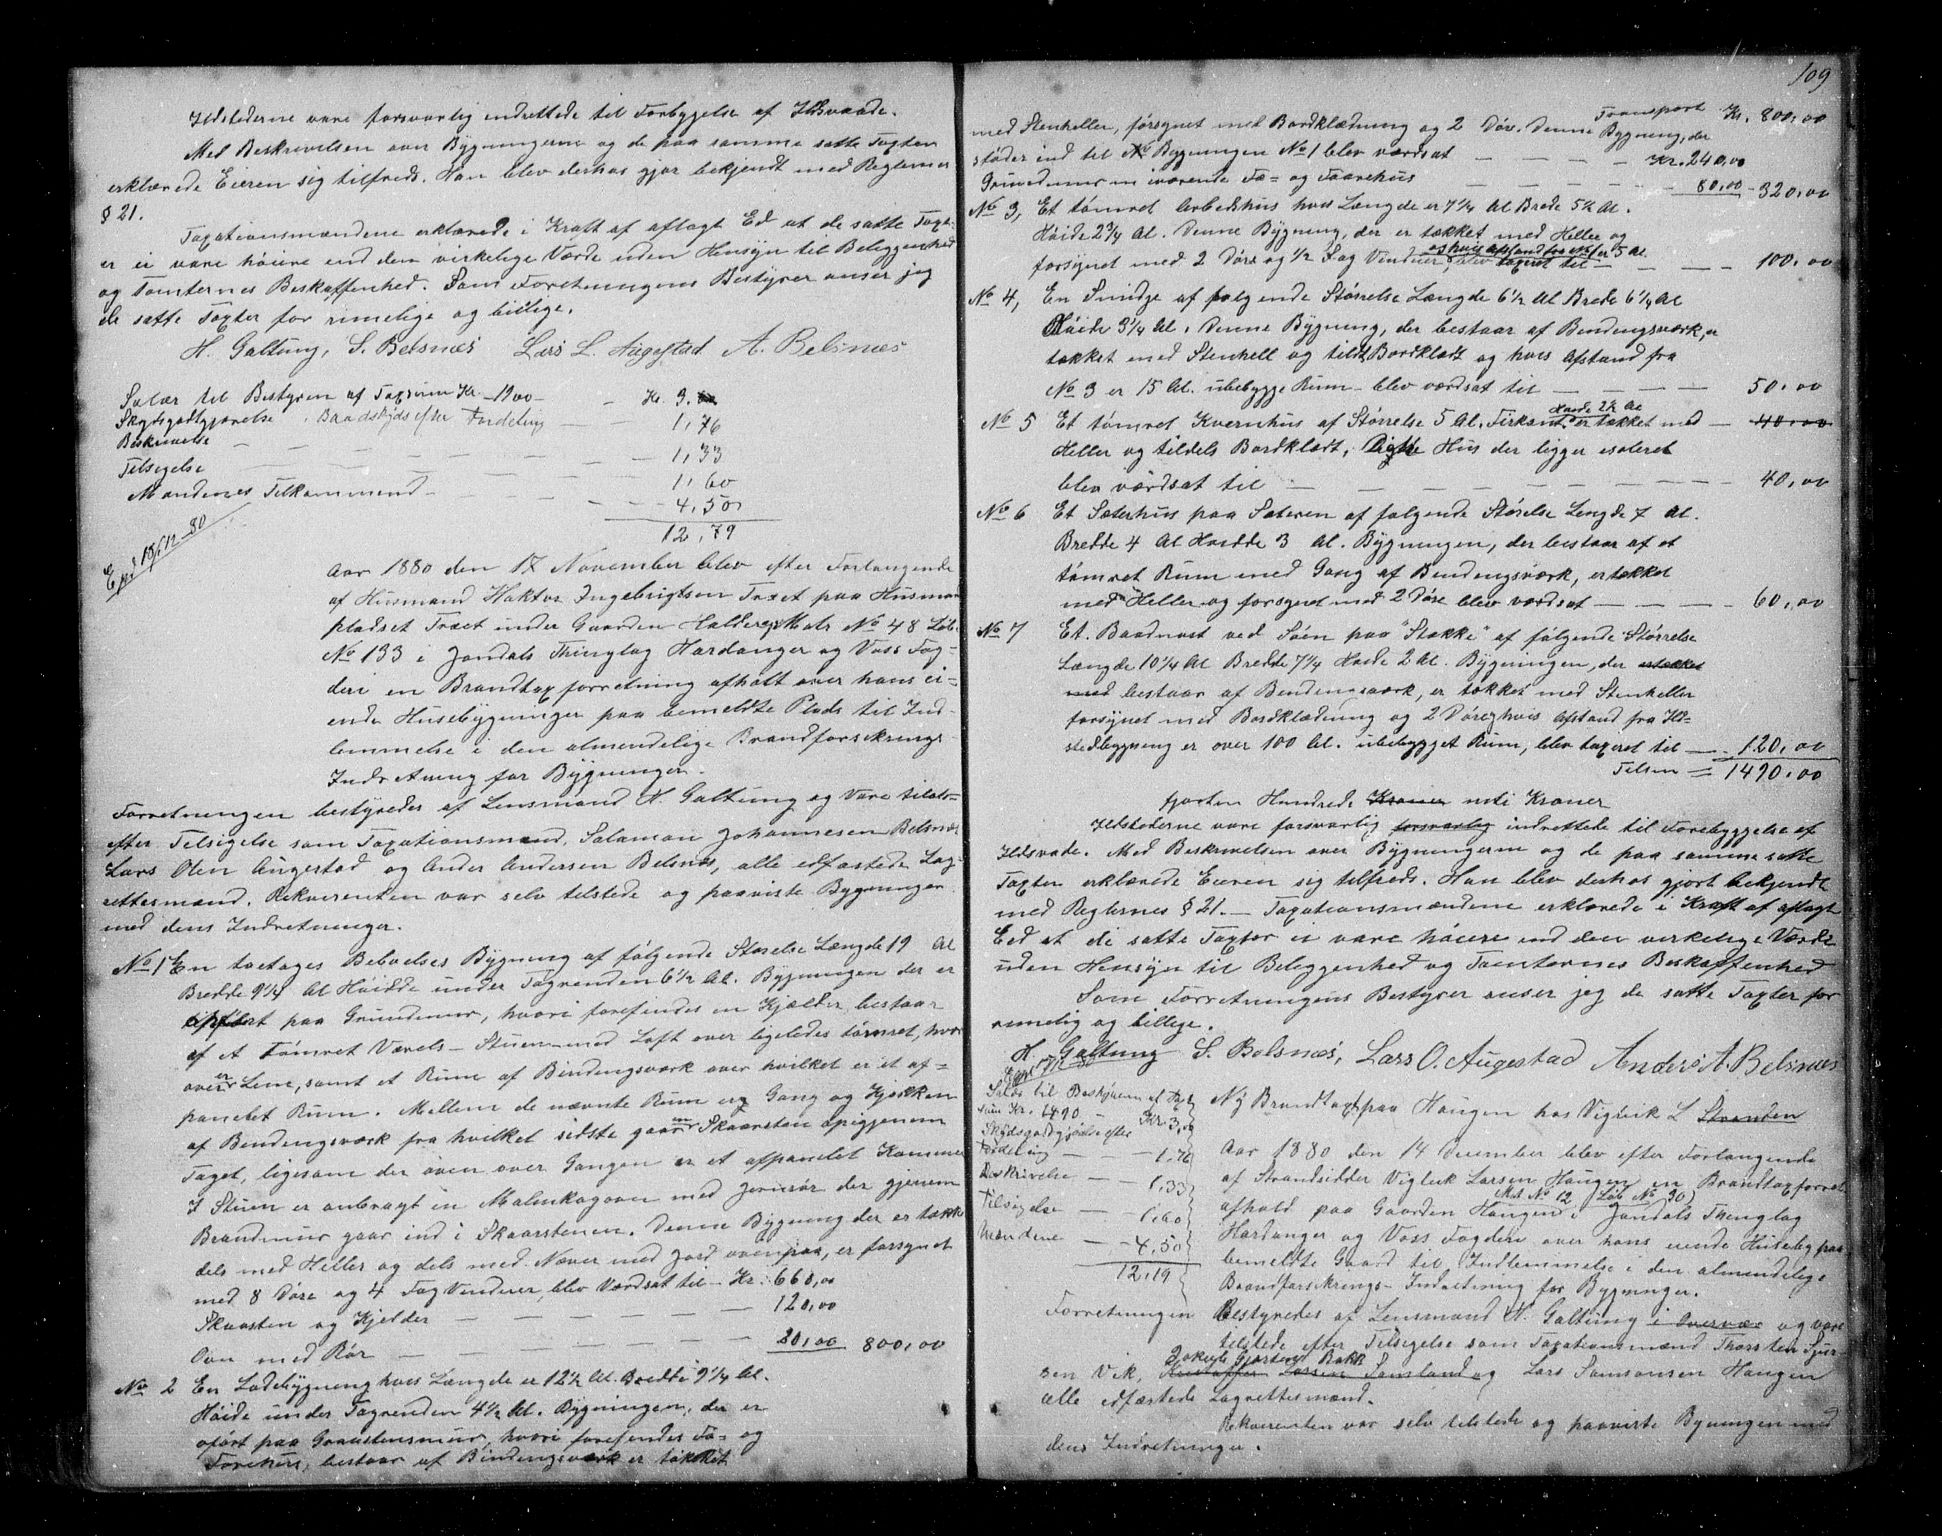 Ildstederne vare forsvarlig indrettede til Forbygelse af Ildsvaade.
Med Beskrivelsen over Bygningerne og de paa samme satte Taxter
erklærede Eieren sig tilfreds. Han blev derhos gjor bekjendt med Reglernes
§ 21.
Taxationsmændene erklærede i Kraft af aflagt Ed at de satte Taxt-
er ei vare høiere end den virkelige Værde uden Hensyn til Beleggenhed
og Tomternes Beskaffenhed. Som Forretningens Bestyrer anser jeg
de satte Taxter for rimelige og billige.
H. Galtung, S. Belsnæs Lars L. Augestad A. Belsnæs
Salær til Bestyren af Taxsum Kr. 1900 — Kr 3.
Skydsgodtgjørelse Baadskyds efter Fordeling — 1,76
Beskrivelse — 1,33
Tilsigelse — 1,60
Mændenes Tilkommend — 4,50
12,79
Exp 13/12-80
Aar 1880 den 17 November blev efter Forlangende
af Husmand Haktor Ingebrigtsen Træet paa Husmans
pladset Træet under Gaarden Haldereg Matr No 48 Løb
No 133 i Jondals Thinglag Hardanger og Voss Fog-
deri en Brandtaxforretning afholt over hans ei-
ende Husebygninger paa bemeldte Plads til Ind-
lemmelse i den almendelige Brandforsikrings
Indretning for Bygninger.
Forretningen bestyredes af Lensmand H. Galtung og vare tilste-
efter Tilsigelse som Taxationsmænd, Salamon Johannesen Belsnæs
Lars Olen Augestad og Ander Andersen Belsnæs, alle edfæstede Lag-
rettesmænd. Rekvirenten var selv tilstede og paaviste Bygningen
med dens Indretninger.
No 1 En toetages Bebvelses Bygning af følgende Størelse Længde 19 Al
Bredde 9 1/4 Al Høidde under Tagrenden 6 1/2 Al. Bygningen der er
opført paa Grundmur, hvori forefindes en Kjælder, bestaar
af et Tømret Værels – Stuen – med Loft over ligeledes tømret, hvor
over er Lem, samt et Rum af Bindingsværk over hvilket er et af-
panelet Rum. Mellem de nævnte Rum er Gang og Kjøkken
af Bendingsværk fra hvilket sidste gaar en Skaarsten opigjenem
Taget, ligesom der oven over Gangen er et afpanelet Kammer
I Stuen er anbragt en Malmkagoven med Jernrør der gjenem
Brandmur gaar ind i Skaarstenen. Denne Bygning der er tække
dels med Heller og dels med Næver med Jord ovenpaa, er forsynet
med 8 Døre og 4 Fag Vinduer, blev Værdsat til – Kr. 660,00
Skaarsten og Kjelder — 120,00
Ovn med Rør — 20,00 800,00
No 2 En Ladebygning hvis Længde er 12 1/2 Al. Bredde 9 1/4 Al.
Høide under Tagrenden 4 1/2 Al. Bygningen, der er
oført paa Graastensmur, hvori forefindes Fæ- og
Faarehus, bestaar af Bindingsværk er tækket
109
Transport Kr. 800,00
med Stenheller, forsynet med Bordklædning og 2 Dør. Denne Bygning, der
støder ind til Bygningen No 1 blev værdsat — Kr. 240,00
Grundmuren iværende Fæ- og Faarehus — 80,00 – 320,00
No 3, Et tømret Arbedshus hvis Længde er 7 1/4 Al Brede 5 1/2 Al.
Høide 2 3/4 Al. Denne Bygning, der er tækket med Heller og
forsynet med 2 Døre og 1/2 Fag Vinduer, og hvis Afstand fra No 1 er 5 Al. blev taxeret til — 100,00
No 4, En Smidje af følgende Størrelse Længde 6 1/2 Al Brede 6 1/4 Al
Høide 3 1/4 Al. Denne Bygning, der bestaar af Bendingsværk, er
tækket med Stenhell og tilds Bordklædt og hvis Afstand fra
No 3 er 15 Al. ubebygge Rum – blev værdsat til — 50,00
No 5 Et tømret Kvernhus af Størrelse 5 Al. Firkant, Høide 2 1/2 Al er tækket med — 40,00
Heller og tildels Bordklædt, Dette Hus der ligger isoleret
blev værdsat til — 40,00
No 6 Et Sæterhus paa Sæteren af følgende Størelse Lengde 7 Al.
Bredde 4 Al Høidde 3 Al. Bygningen, der bestaar af et
tømret Rum med Gang af Bendingsværk, er tækket
med Heller og forsynet med 2 Døre blev værdsat — 60,00
No 7 Et Baadnøst ved Søen paa "Stække" af følgende Størrelse
Længde 10 1/4 Al Bredde 7 1/4 Høide 2 Al. Bygningen, der er tækket
med bestaar af Bendingsværk, er tækket med Stenheller
forsynet med Bordklædning og 2 Døre, hvis Afstand fra Ild-
stedbygning er over 100 Al. ubebygget Rum, blev taxeret til — 120,00
Tilsm = 1490,00
fjorten Hundrede Kroner nitti Kroner
Ildstederne vare forsvarlig forsvarlig indrettede til Forebyggelse af
Ildsvade. Med Beskrivelsen over Bygningerne og de paa samme satte
Taxter erklærede Eieren sig tilfreds. Han blev derhos gjort bekjendt
med Reglernes § 21. – Taxationsmændene erklærede i Kraft af aflagt
Eed at de satte Taxter ei vare høiere end den virkelige Værde
uden Hensyn til Beleggenhed og Tomternes Beskaffenhed
Som Forretningens Bestyrer anser jeg de satte Taxter for
rimelig og billige.
H. Galtung S. Belsnæs, Lars O. Augestad Anders A. Belsnæs
Salær til Bestyren af Tax
sum Kr. 1490 – Kr. 3,00
Skydsgodtgjørelse efter
Fordeling — 1.76
Beskrivelse — 1,33
Tilsigelse — 1,60
Mændene — 4,50
12,19
Ny Brandtaxt paa Haugen hos Vigleik L Stranden
Aar 1880 den 14 December blev efter Forlangende
af Strandsidder Vigleik Larsen Haugen en Brandtaxforret
afhold paa Gaarden Haugen Mat No 12 Løb No 30 i Jondals Thinglag
Hardanger og Voss Fogderi over hans eiende Husebyg paa
bemeldte Gaard til Indlemmelse i den almindelige
Brandforsikrings-Indretning for Bygninger.
Forretningen bestyredes af Lensmand H. Galtung i Overvær og vare
tilstede efter Tilsigelse som Taxationsmænd Thorsten Sjur-
sen Vik, Kristoffer Larsen Samland og Lars Samsonsen Haugen
alle edfæstede Lagrettesmænd.
Rekvirenten var selv tilstede og paaviste Bygningen med
dens Indretninger.